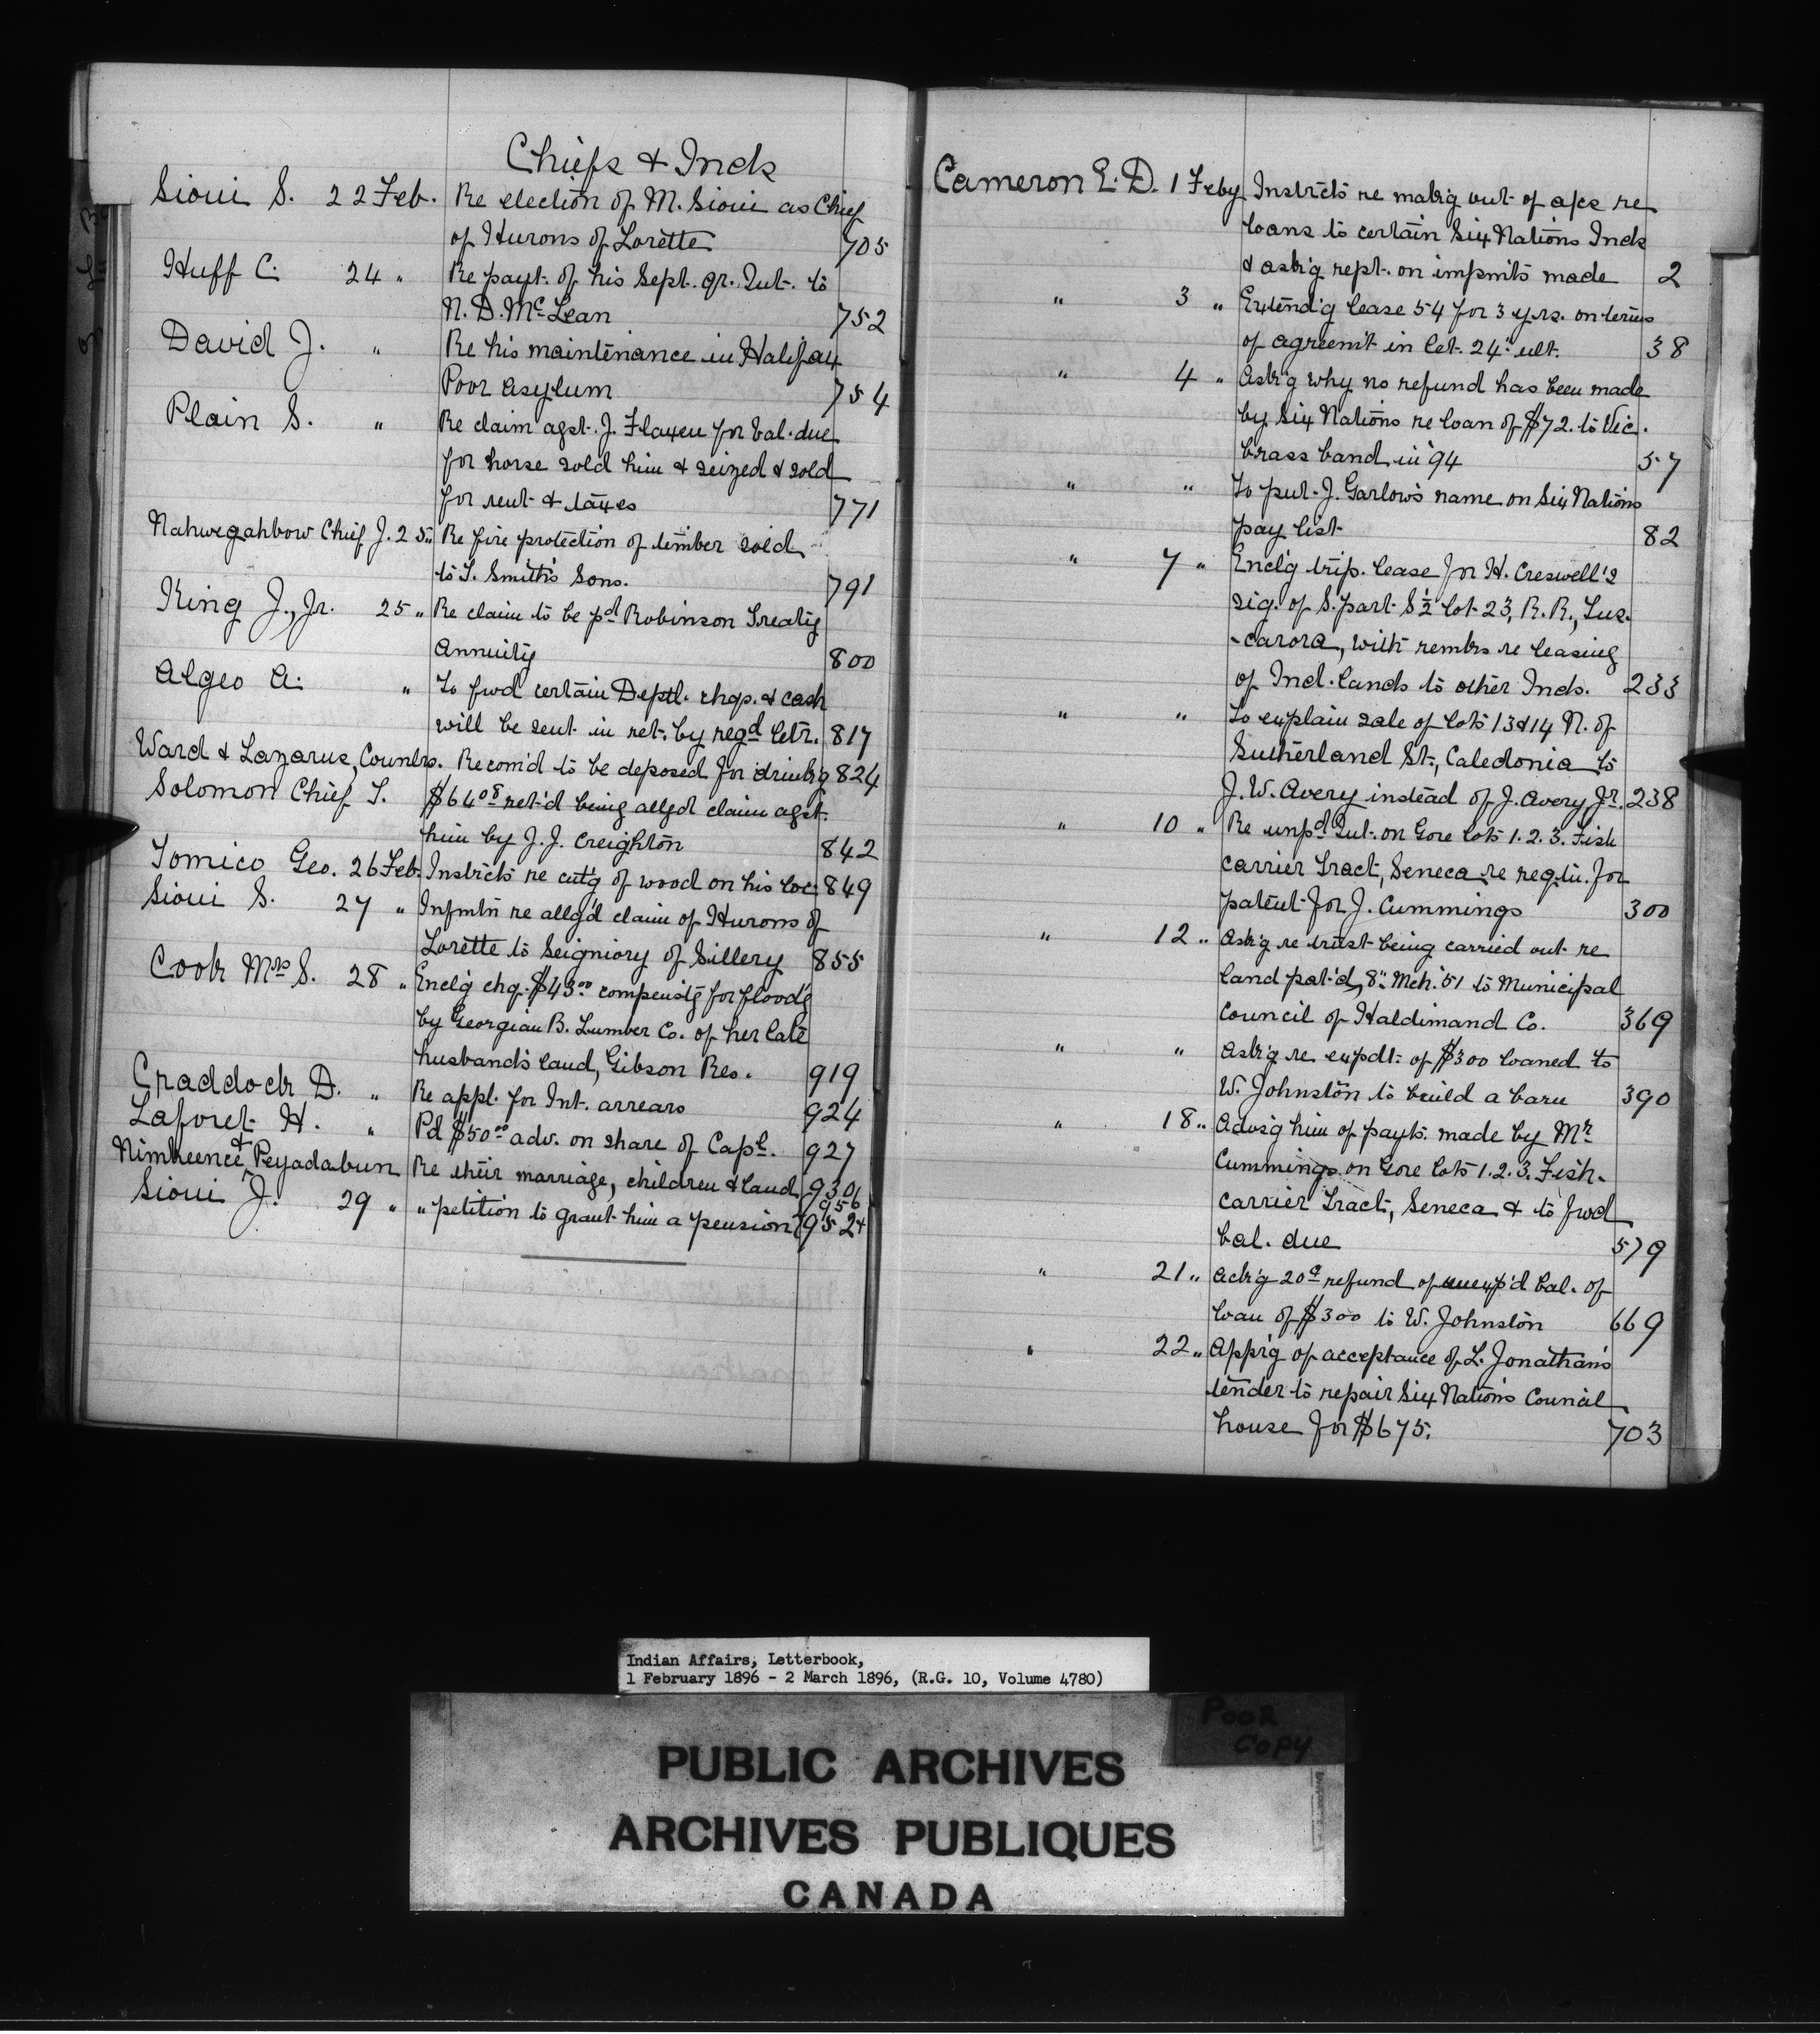 Chiefs & Inds
Sioui S. 22 Feb. Re election of M. Sioui as Chief
of Hurons of Lorette 705
Huff C. 24 " Re payt. of his Sept. qr. Int. to
N. D. McLean 752
David J. " Re his maintenance in Halifax
Poor Asylum 754
Plain S. " Re claim agst. J. Flaxen for bal. due
for horse sold him & seized & sold
for rent & taxes 771
Nahwegahbow Chief J. 25 " Re fire protection of timber sold
to T. Smith's Sons. 791
King J., Jr. 25 " Re claim to be pd Robinson Treaty
Annuity 800
Algeo A. " To fwd certain Deptl. chqs. & cash
will be sent in ret. by regd letr. 817
Ward & Lazarus, Counlrs. Recom'd to be deposed for drink'g 824
Solomon Chief T. $64.08 ret'd being allgd claim agst.
him by J. J. Creighton 842
Tomico Geo. 26 Feb. Instrcts re cut'g of wood on his loc. 849
Sioui S. 27 " Infmtn re allg'd claim of Hurons of
Lorette to Seigniory of Sillery 855
Cook Mrs S. 28 " Enclg chq. $43.00 compenstg for flood'g
by Georgian B. Lumber Co. of her late
husband's land, Gibson Res. 919
Craddock D. " Re appl. for Int. arrears 924
Laforet H. " Pd $50.00 adv. on share of Capl. 927
Nimkeence & Peyadabun Re their marriage, children & land 930
956
Sioui J. 29 " " petition to grant him a pension 952
Cameron E. D. 1 Feby Instrcts re makg out of a/cs re
loans to certain Six Nations Inds
& ask'g rept. on impmts made 2
" 3 " Extend'g lease 54 for 3 yrs. on terms
of agreem't in let. 24" ult. 38
" 4 " Ask'g why no refund has been made
by Six Nations re loan of $72. to Vic.
brass band in '94 57
" " To put J. Garlow's name on Six Nations
pay list 82
" 7 " Enclg trip. lease for H. Creswell's
sig. of S. part S½ lot 23, R. R., Tus-
-carora, with remks re leasing
of Ind. lands to other Inds. 233
" " To explain sale of lots 13&14 N. of
Sutherland St., Caledonia to
J. W. Avery instead of J. Avery Jr. 238
" 10 " Re unpd Int. on Gore lots 1.2.3. Fish
carrier Tract, Seneca re reqtn. for
patent for J. Cummings 300
" 12 " Ask'g re trust being carried out re
land pat'd, 8" Mch. '51 to Municipal
Council of Haldimand Co. 369
" " Ask'g re expdt. of $300 loaned to
W. Johnston to build a barn 390
" 18 " Advs'g him of payts. made by Mr
Cummings on Gore lots 1.2.3. Fish-
carrier Tract, Seneca & to fwd
bal. due 579
" 21 " Ack'g 20¢ refund of unexp'd bal. of
loan of $300 to W. Johnston 669
" 22 " App'g of acceptance of L. Jonathan's
tender to repair Six Nations Council
house for $675. 703
Indian Affairs, Letterbook,
1 February 1896 - 2 March 1896, (R.G. 10, Volume 4780)
POOR
COPY
PUBLIC ARCHIVES
ARCHIVES PUBLIQUES
CANADA